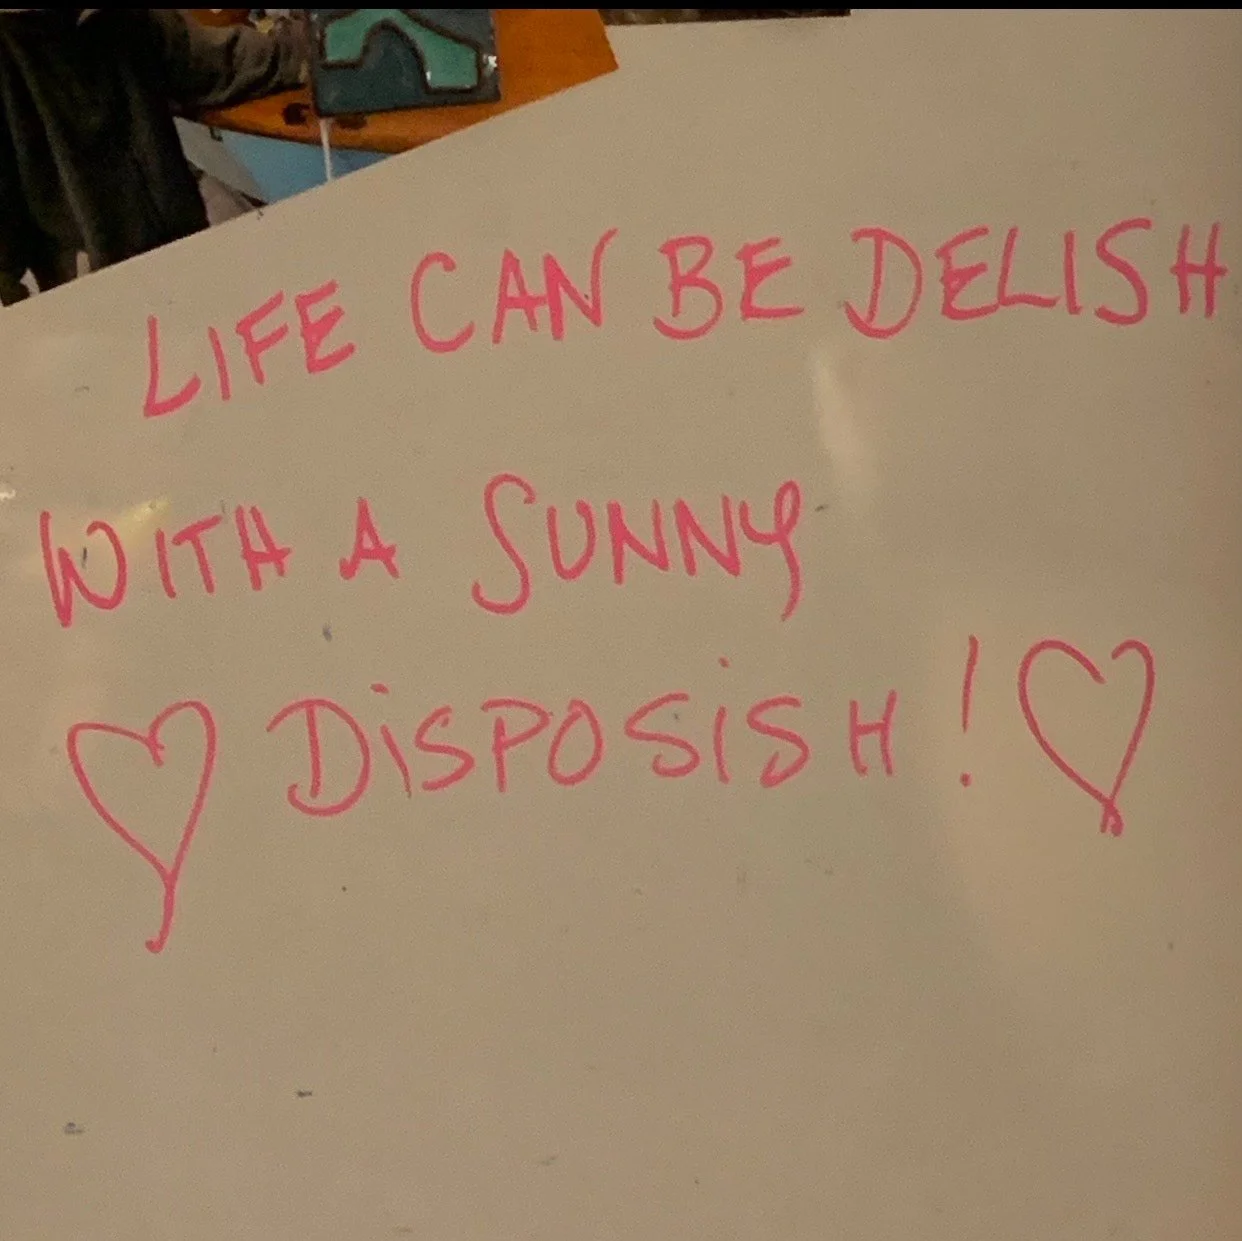 LIFE CAN BE DELISH
WITH A SUNNY
♡ DiSPOSiSH ! ♡